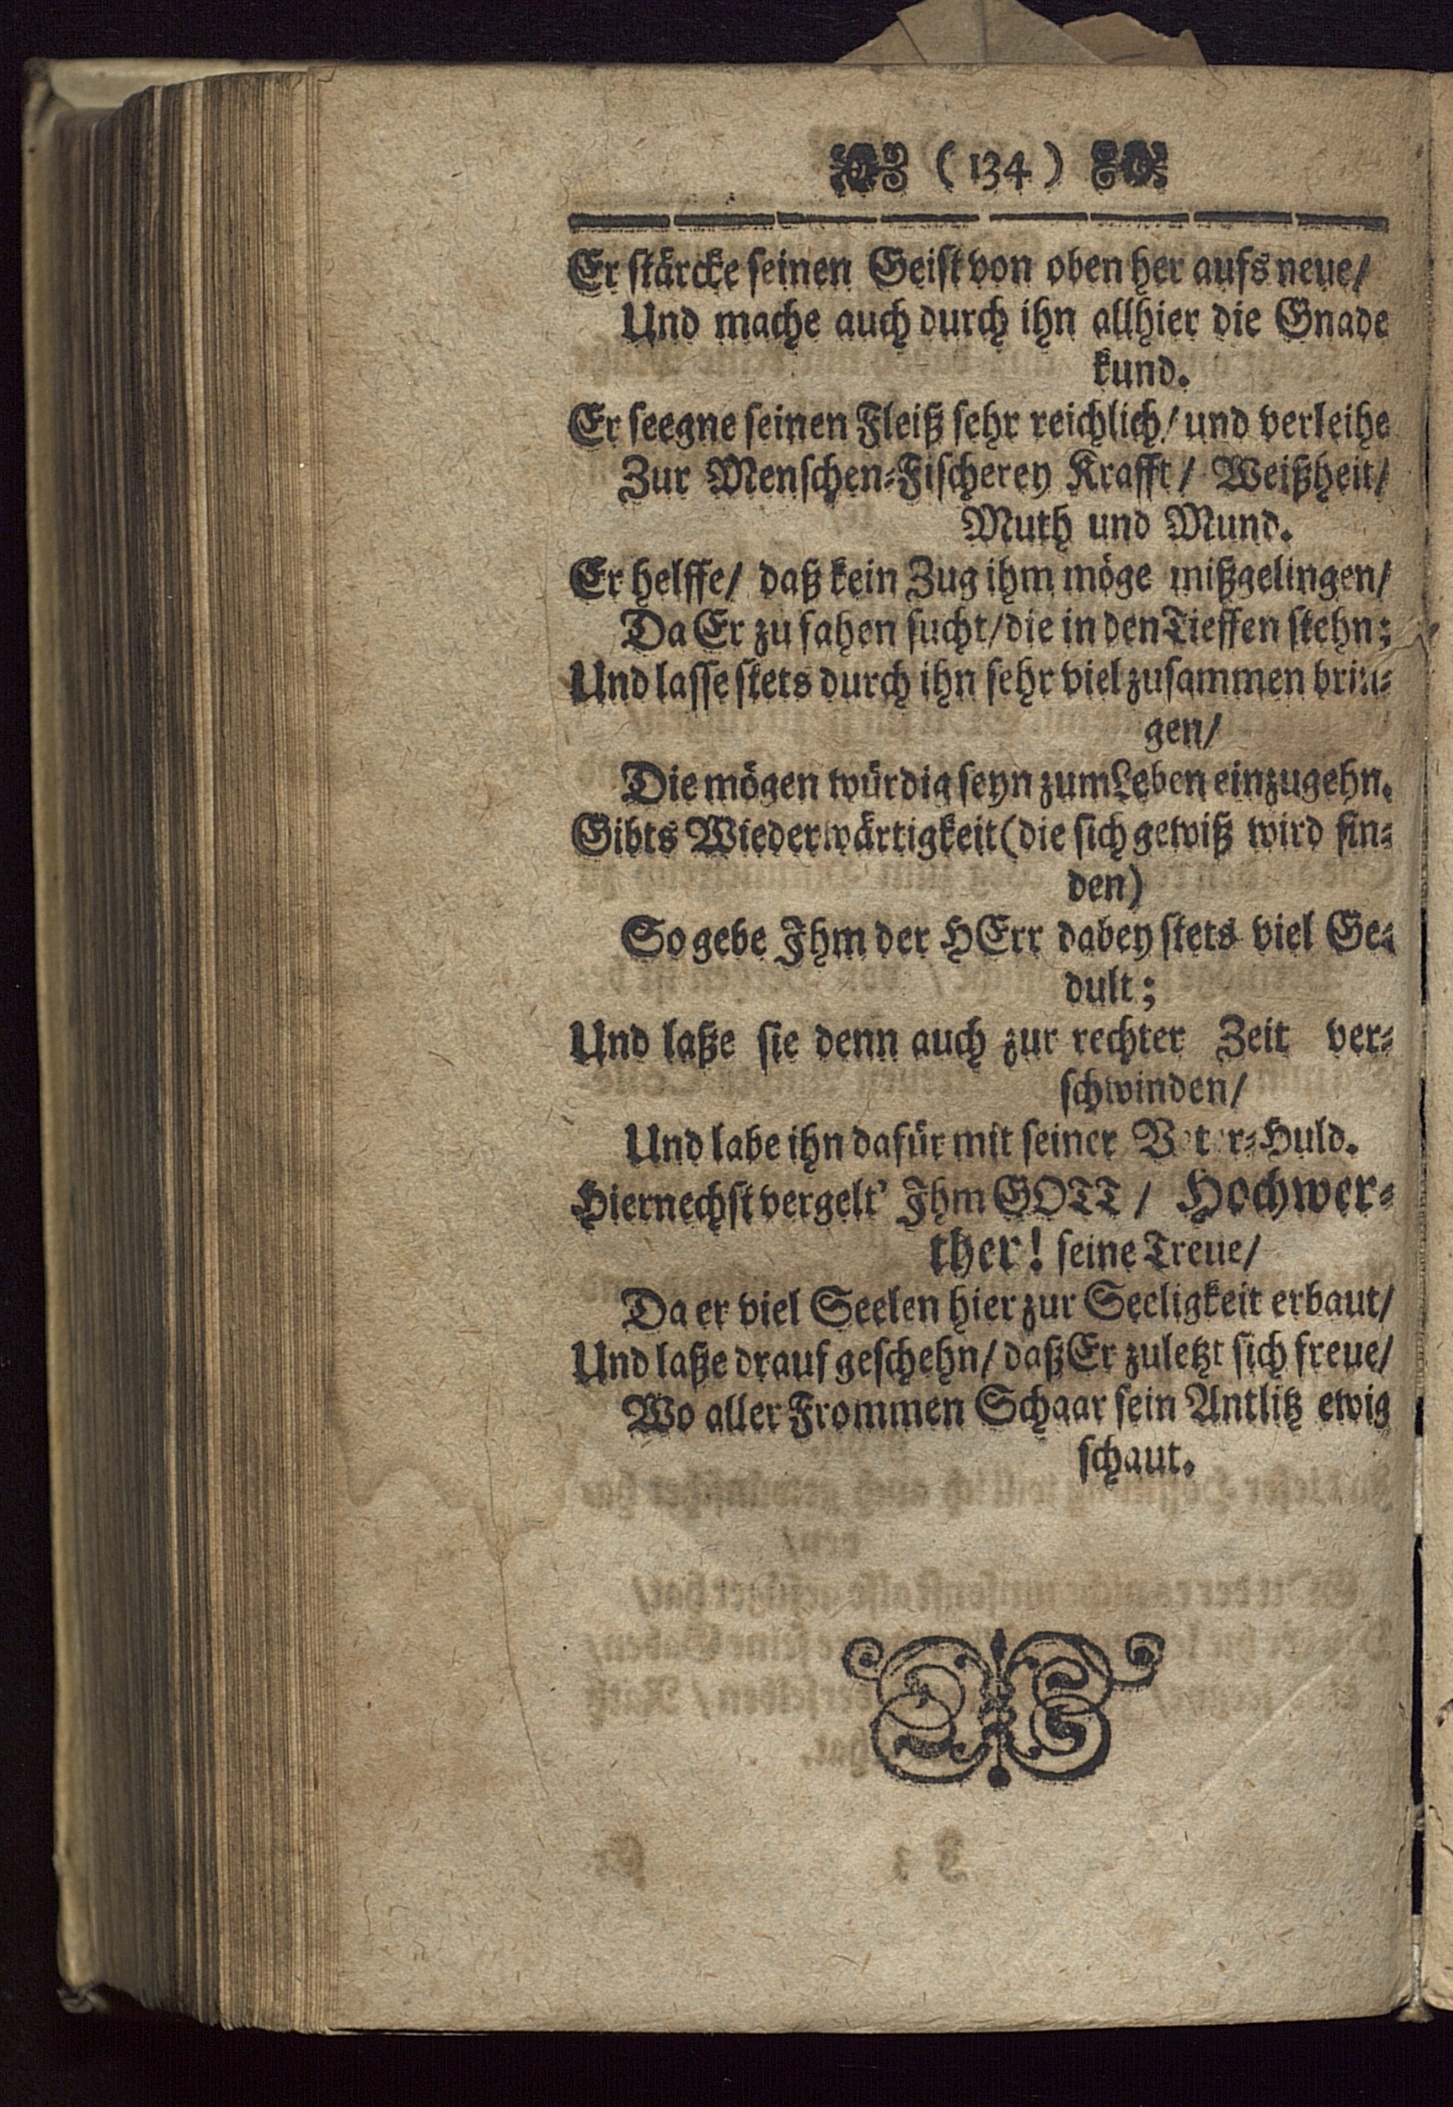 (134)
Er stärcke seinen Geist von oben her aufs neue/
Und mache auch durch ihn allhier die Gnade
kund.
Er seegne seinen Fleiß sehr reichlich/ und verleihe
Zur Menschen-Fischerey Krafft/ Weißheit/
Muth und Mund.
Er helffe/ daß kein Zug ihm möge mißgelingen/
Da Er zu fahen sucht/ die in den Tieffen stehn;
Und lasse stets durch ihn sehr viel zusammen brin-
gen/
Die mögen würdig seyn zum Leben einzugehn.
Gibts Wiederwärtigkeit (die sich gewiß wird fin-
den)
So gebe Ihm der HErr dabey stets viel Ge-
dult;
Und laße sie denn auch zur rechter Zeit ver-
schwinden/
Und labe ihn dafür mit seiner Vater-Huld.
Hiernechst vergelt' Ihm GOTT/ Hochwer-
ther! seine Treue/
Da er viel Seelen hier zur Seeligkeit erbaut/
Und laße drauf geschehn/ daß Er zuletzt sich freue/
Wo aller Frommen Schaar sein Antlitz ewig
schaut.